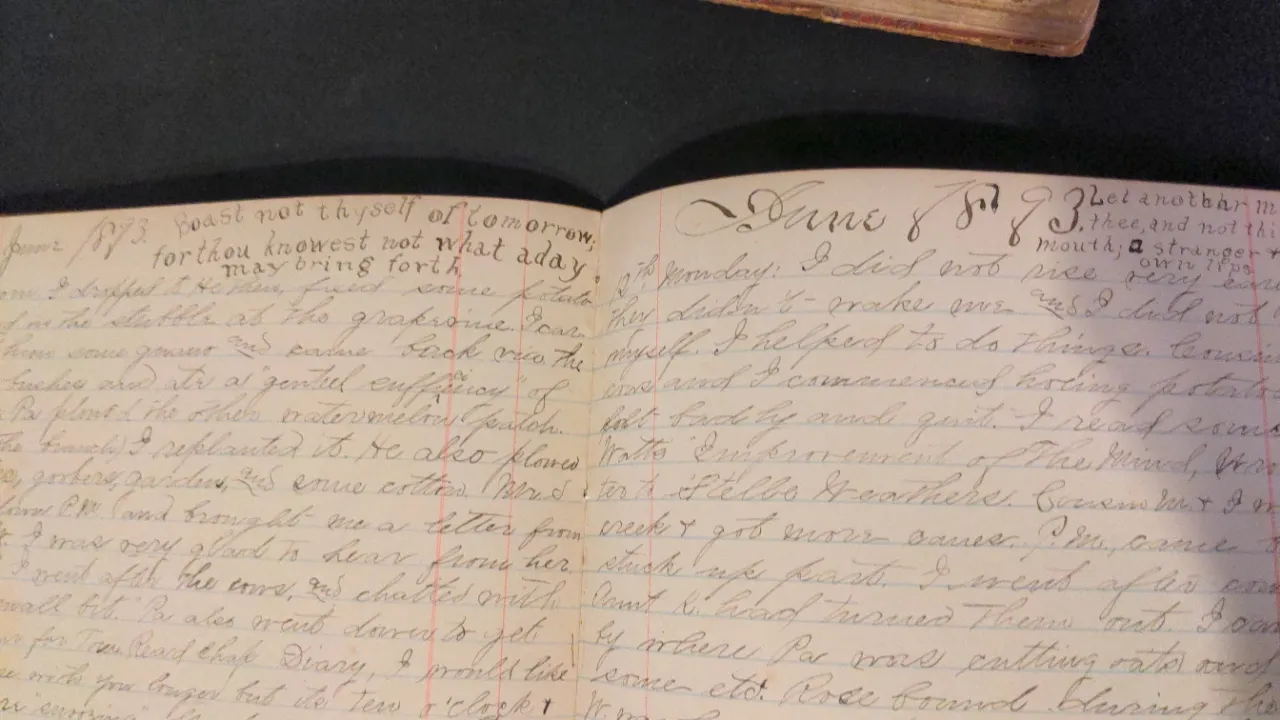 June 1893. Boast not thyself of tomorrow;
for thou knowest not what a day
may bring forth
I dropped some potato
in the stubble at the grapevine. I
some guano and came back via the
bushes and ate a "genteel sufficiency" of
Pa plowed the other watermelon patch.
the branch) I replanted it. He also plowed
goobers, garden, and some cotton. Mr.
P.M. and brought me a letter from
I was very glad to hear from her
I went after the cows, and chatted with
small bit. Pa also went down to get
for Tom. Pearl Chap Diary, I would like
with you longer but its ten o'clock &
snoozing"
June 1893.
Let anothhr m
thee, and not thi
mouth; a stranger &
own lips
12th Monday: I did not rise very
they didn't wake me and I did not
myself. I helped to do things. Cousin
and I commenced hoeing potato
felt badly and quit. I read some
Watts' Improvement of The Mind,
ter to Stella Weathers. Cousin M. & I
& got more canes. P.M. came
stuck up part. I went after
Aunt K. had turned them out. I
by where Pa was cutting oats and
some etc. Rose bound during the